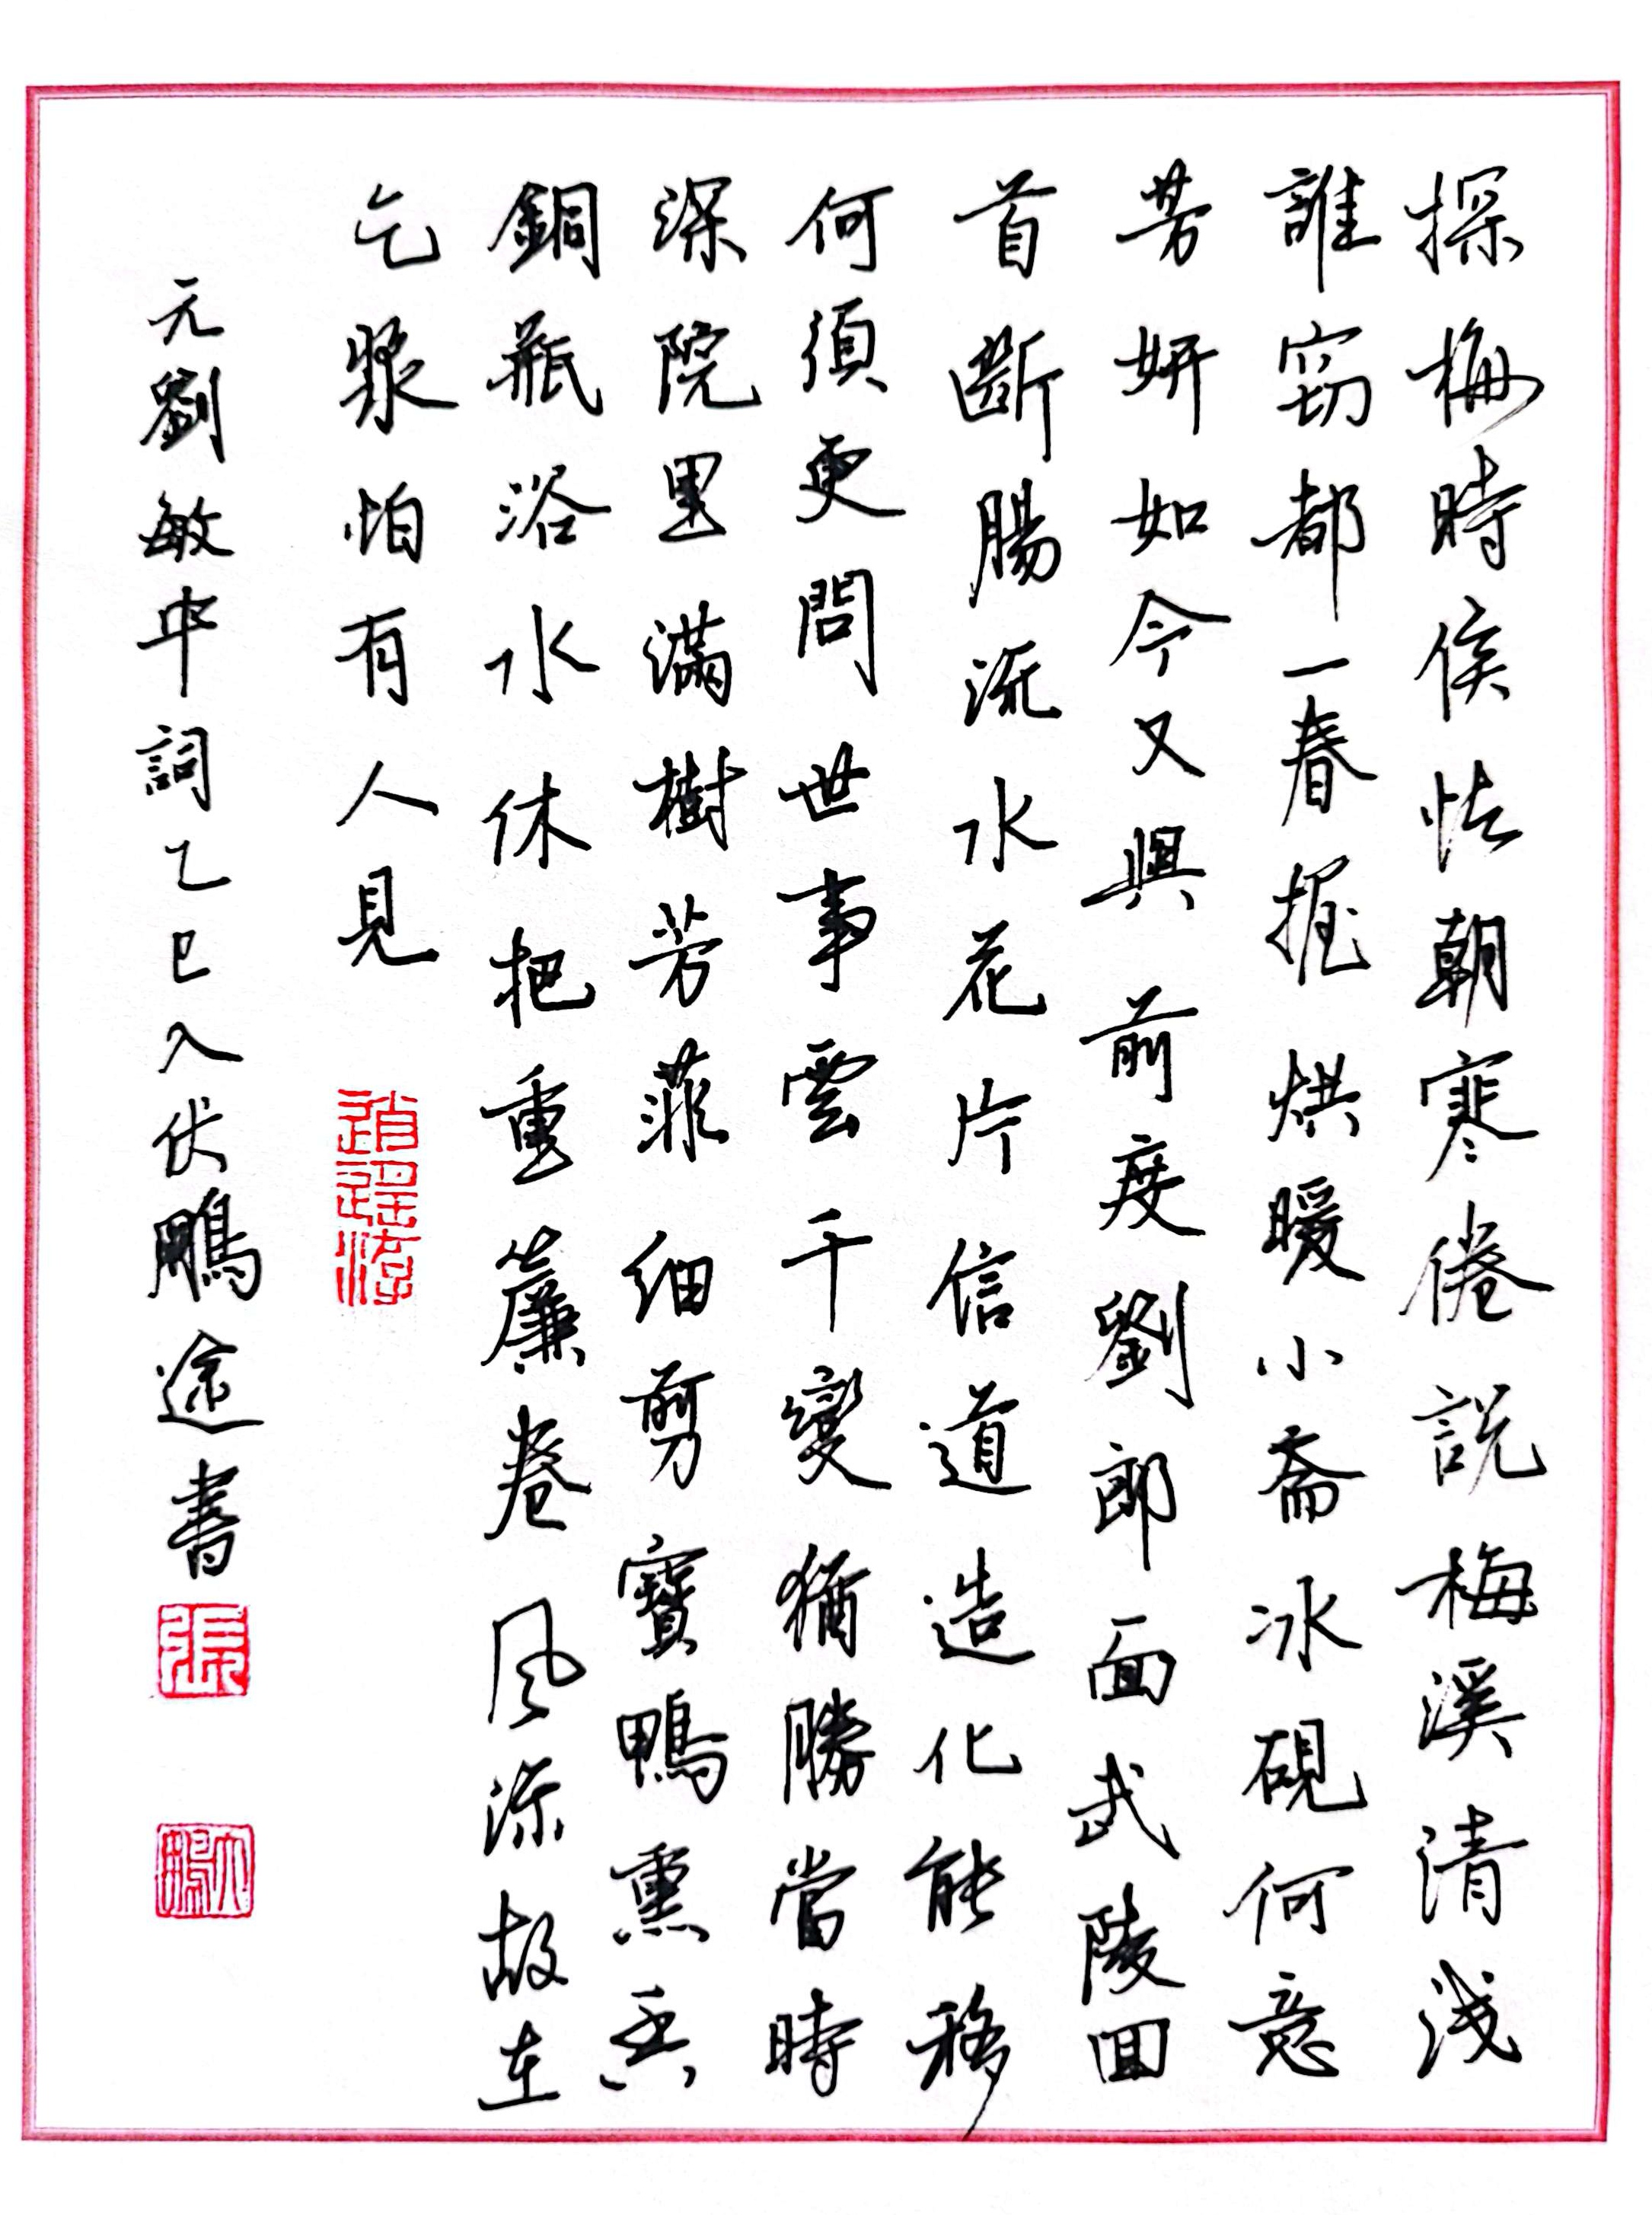 探梅時候怯朝寒倦説梅溪清浅
誰窃都一春握烘暖小斋冰硯何意
芳妍如今又與前度劉郎面武陵回
首断腸流水花片信道造化能移
何須更問世事雲千變猶勝當時
深院里滿樹芳菲细剪寶鴨熏香
銅瓶浴水休把重簾卷风流故在
乞漿怕有人見
逍遥游
元劉敏中詞乙巳入伏鵬途書
張